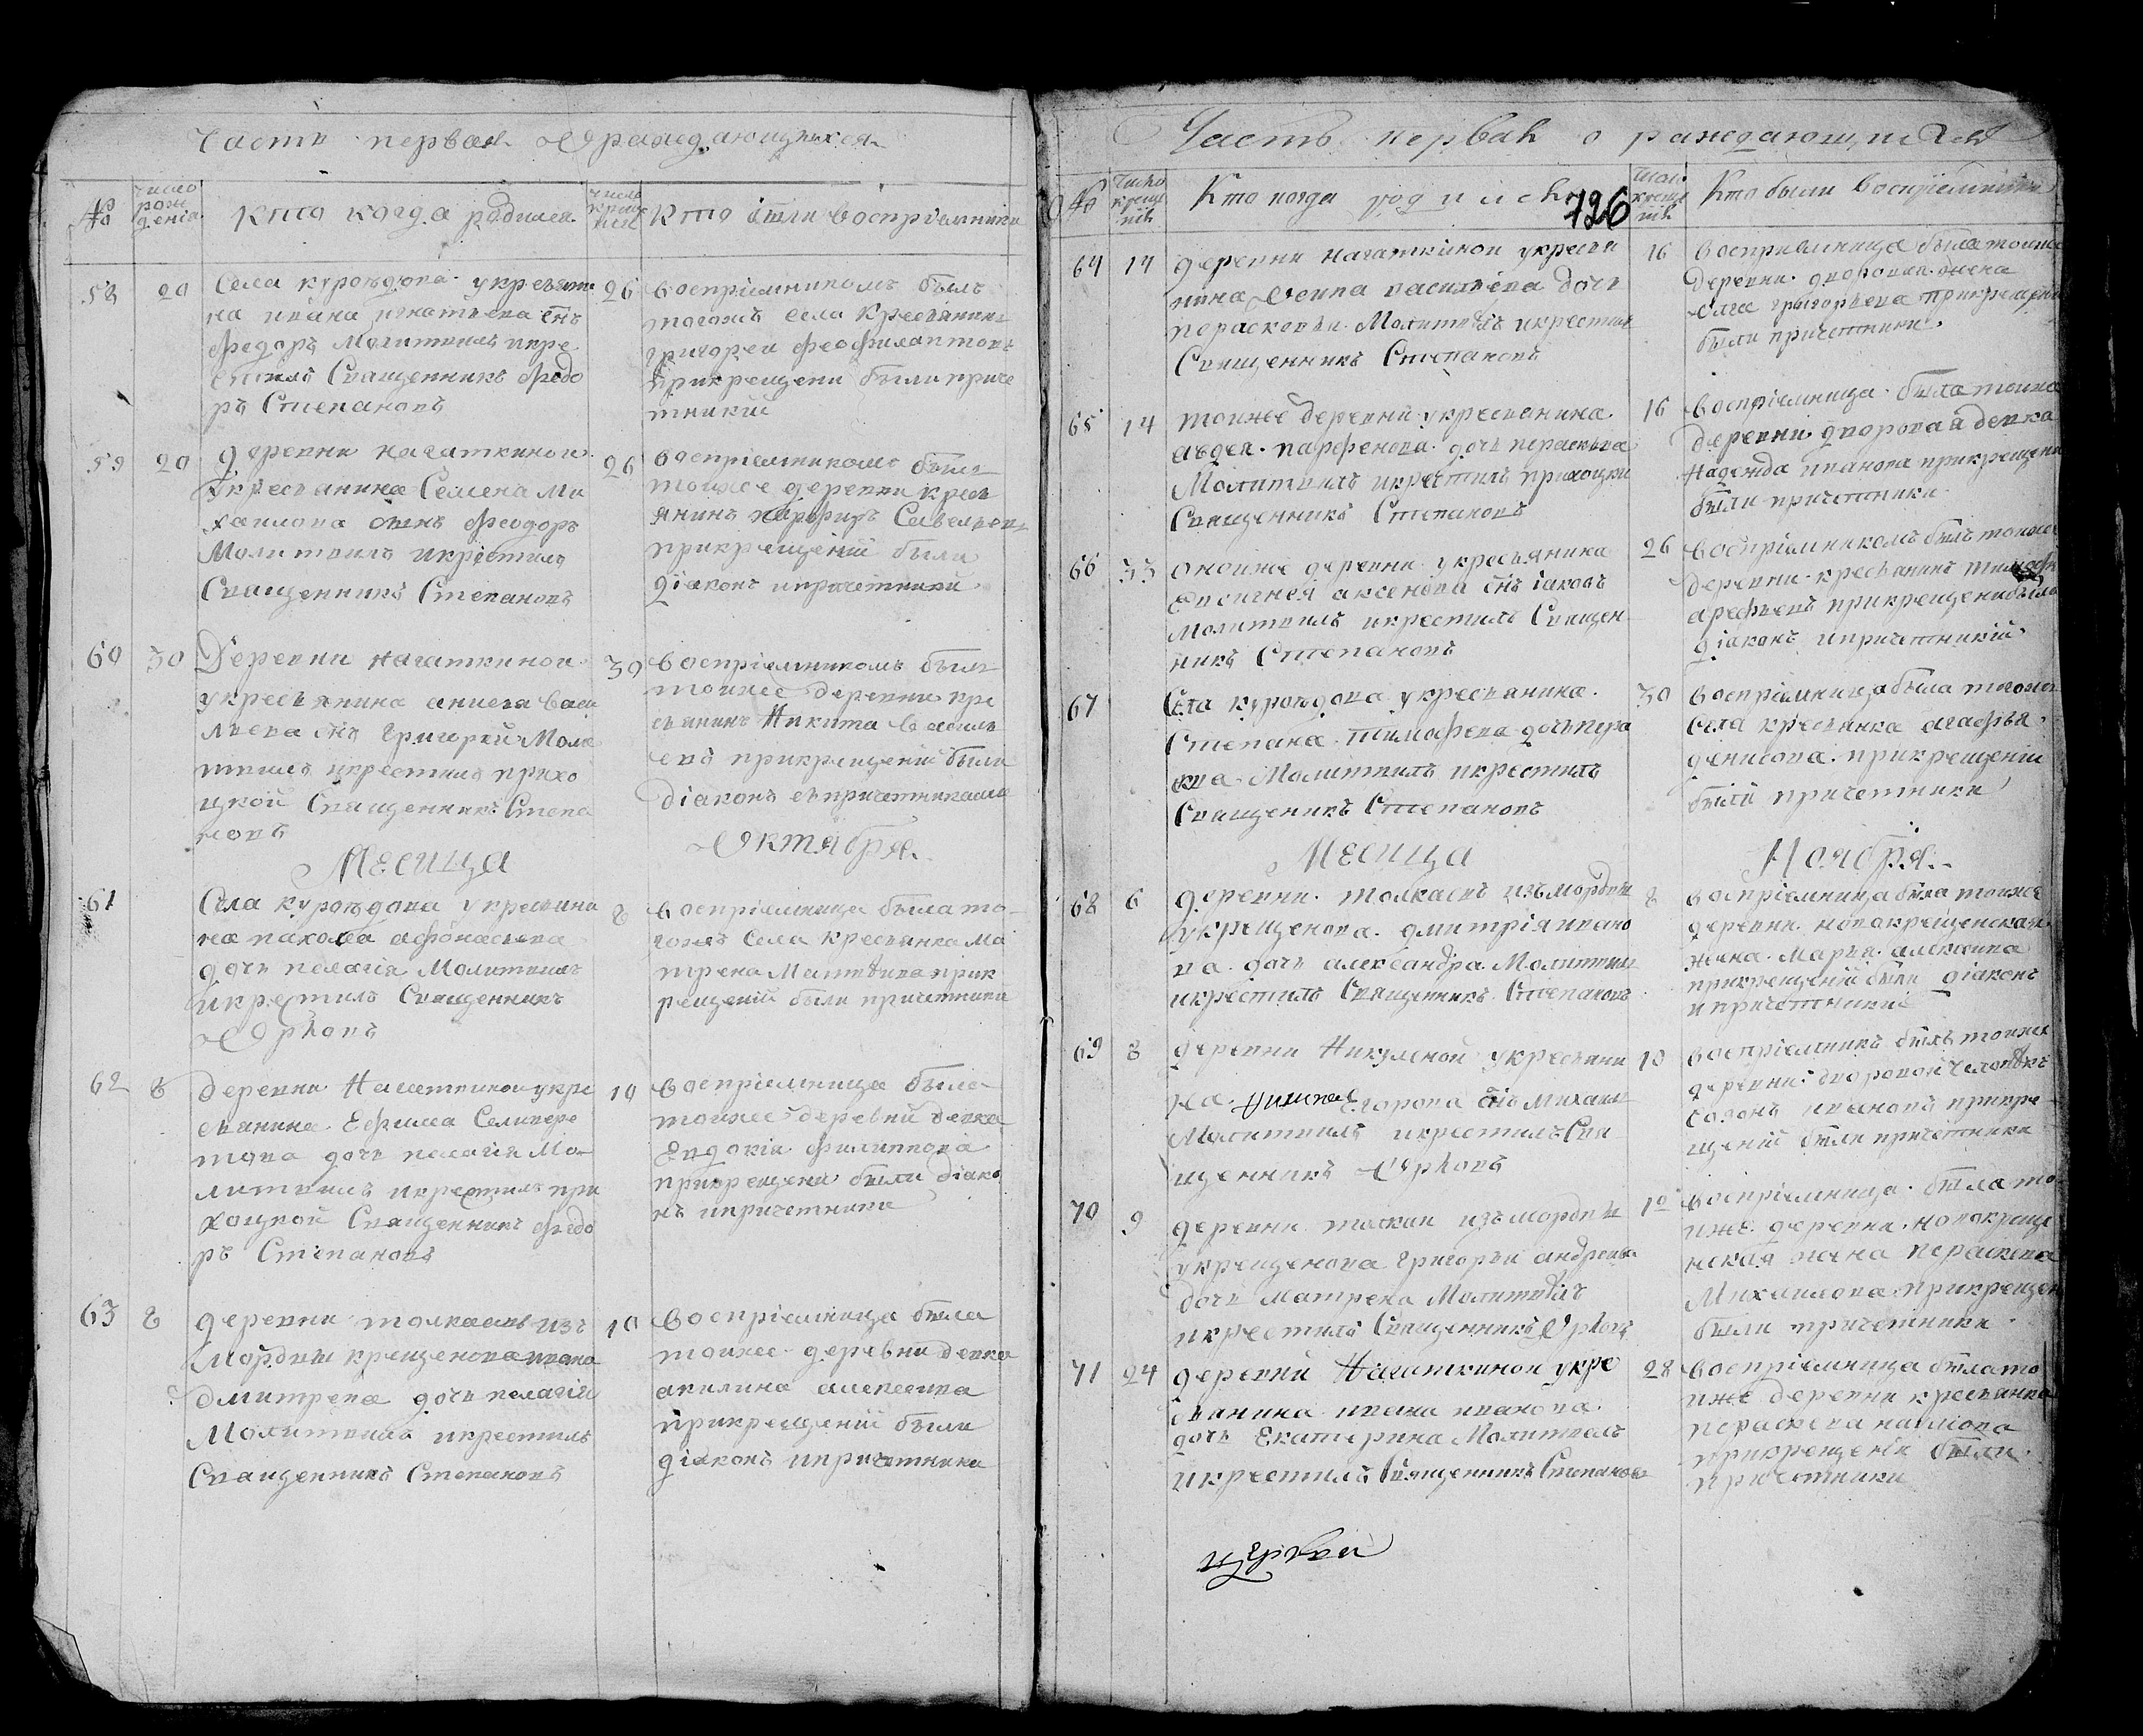 Часть первая О раждающихся
№
число рождения
Кто когда родился
число крещения
Кто были восприемники
58 20
Села куроѣдова укресьяни
на ивана игнатьева снъ
федоръ Молитвилъ икре
стилъ Священникъ федо
ръ Степановъ
26
восприемникомъ былъ
тогожъ села Кресьянинъ
григореи феофилактовъ
прикрещени были приче
тникіи
59 20
деревни нагаткинои
укресьянина Семена Ми
хаилова сынъ феодоръ
Молитвилъ икрестилъ
Священникъ Степановъ
26
восприемникомъ былъ
тоиже деревни кресь
янинъ порфиръ Савельевъ
прикрещеніи были
діаконъ ипричетники
60 30
Деревни нагаткинои
укресьянина анисея васи
льева снъ григорей Моли
твилъ икрестилъ прихо
цкой Священникъ Степа
новъ
30
восприемникомъ былъ
тоиже деревни кре
сьянинъ Никита василь
евъ прикрещеніи были
діаконъ съпричетниками
Месица Октября
61
Села куроѣдова укресьяни
на пахома афонасьева
дочь пелагія Молитвилъ
икрестилъ Священникъ
Орловъ
8
восприемница была то
гожъ Села кресьянка Ма
трена Матвѣива прик
рещеніи были причетники
62 8
деревни Нагаткинои укре
сьянина Ефима Селивере
това дочь пелагія Мо
литвилъ икрестилъ при
хоцкой Священникъ федо
ръ Степановъ
10
восприемница была
тоиже деревни девка
Евдокія филиппова
прикрещени были діако
нъ ипричетники
63 8
деревни толкаевъ изъ
Мордвы крещенова ивана
дмитрева дочь пелагія
Молитвилъ икрестилъ
Священникъ Степановъ
10
восприемница была
тоиже деревни девка
акилина алексеива
прикрещеніи были
діаконъ ипричетники
Часть первая о раждающихся
№
число крещ нія
Кто когда родился
726
число креще нія
Кто были восприемники
64 14
деревни нагаткинои укресья
нина Осипа василиева дочь
порасковьи Молитвилъ икрестилъ
Священникъ Степановъ
16
восприемница была тоиже
деревни дворовая жена
Олга григорьева прикрещени
были причетники
65 14
тоиже деревни укресьянина
авдея парфенова дочь пераскева
Молитвилъ икрестилъ прихоцки
Священникъ Степановъ
16
восприемница была тоиже
деревни дворовая девка
Надежда иванова прикрещени
были причетники
66 33
оноиже деревни укресьянина
Евсигнея аксенова снъ іаковъ
Молитвилъ икрестилъ Священ
никъ Степановъ
26
восприемникомъ былъ тоиже
деревни кресьянинъ тимофей
арефьевъ прикрещени были
діаконъ ипричетникіи
67
Села куроѣдова укресьянина
Степана тимофеева дочь пера
скева Молитвилъ икрестилъ
Священикъ Степановъ
30
восприемница была тогожъ
села кресьянка агафья
денисова прикрещеніи
были причетники
Месица Ноября
68 6
деревни толкаевъ изъмордвы
укрещенова дмитрія ивано
ва дочь александра Молитвилъ
икрестилъ Священникъ Степановъ
8
восприемница была тоиже
деревни новокрещенская
жена Марья алексеива
прикрещеніи были діаконъ
ипричетники
69 8
деревни Никулиной укресьяни
на Николая Егорова снъ михаил
Молитвилъ икрестилъ Свя
щенникъ Орловъ
10
восприемникъ былъ тоиже
деревни дворовой человѣкъ
созонъ ивановъ прикре
щеніи были причетники
70 9
деревни толкаи изъмордвы
укрещенова григорьи андреива
дочь матрена Молитвилъ
икрестилъ Священникъ Орловъ
10
восприемница была то
иже деревни новокреще
нская жена пераскева
Михаилова прикрещен
были причетники
71 24
деревни Нагаткинои укре
сьянина ивана иванова
дочь Екатерина Молитвилъ
икрестилъ Священникъ Степановъ
28
восприемница была то
иже деревни кресьянка
пераскева наумова
прикрещеніи были
причетники